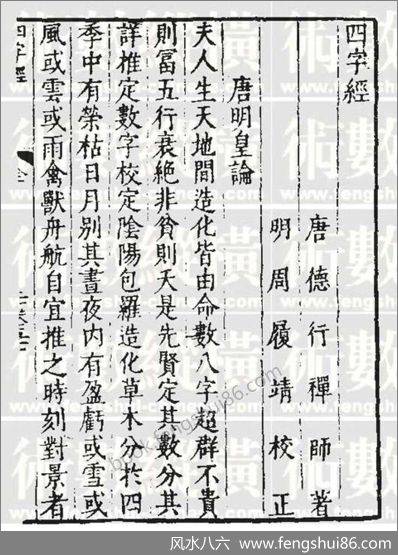 四字經
唐德行禪師著
明周履靖校正
唐明皇論
夫人生天地間造化皆由命數八字超群不貴
則富五行衰絶非貧則夭是先賢定其數分其
詳推定數字校定陰陽包羅造化草木分於四
季中有榮枯日月別其晝夜内有盈虧或雪或
風或雲或雨禽獸舟航自宜推之時刻對景者
四字經
风水八六 www.fengshui86.com